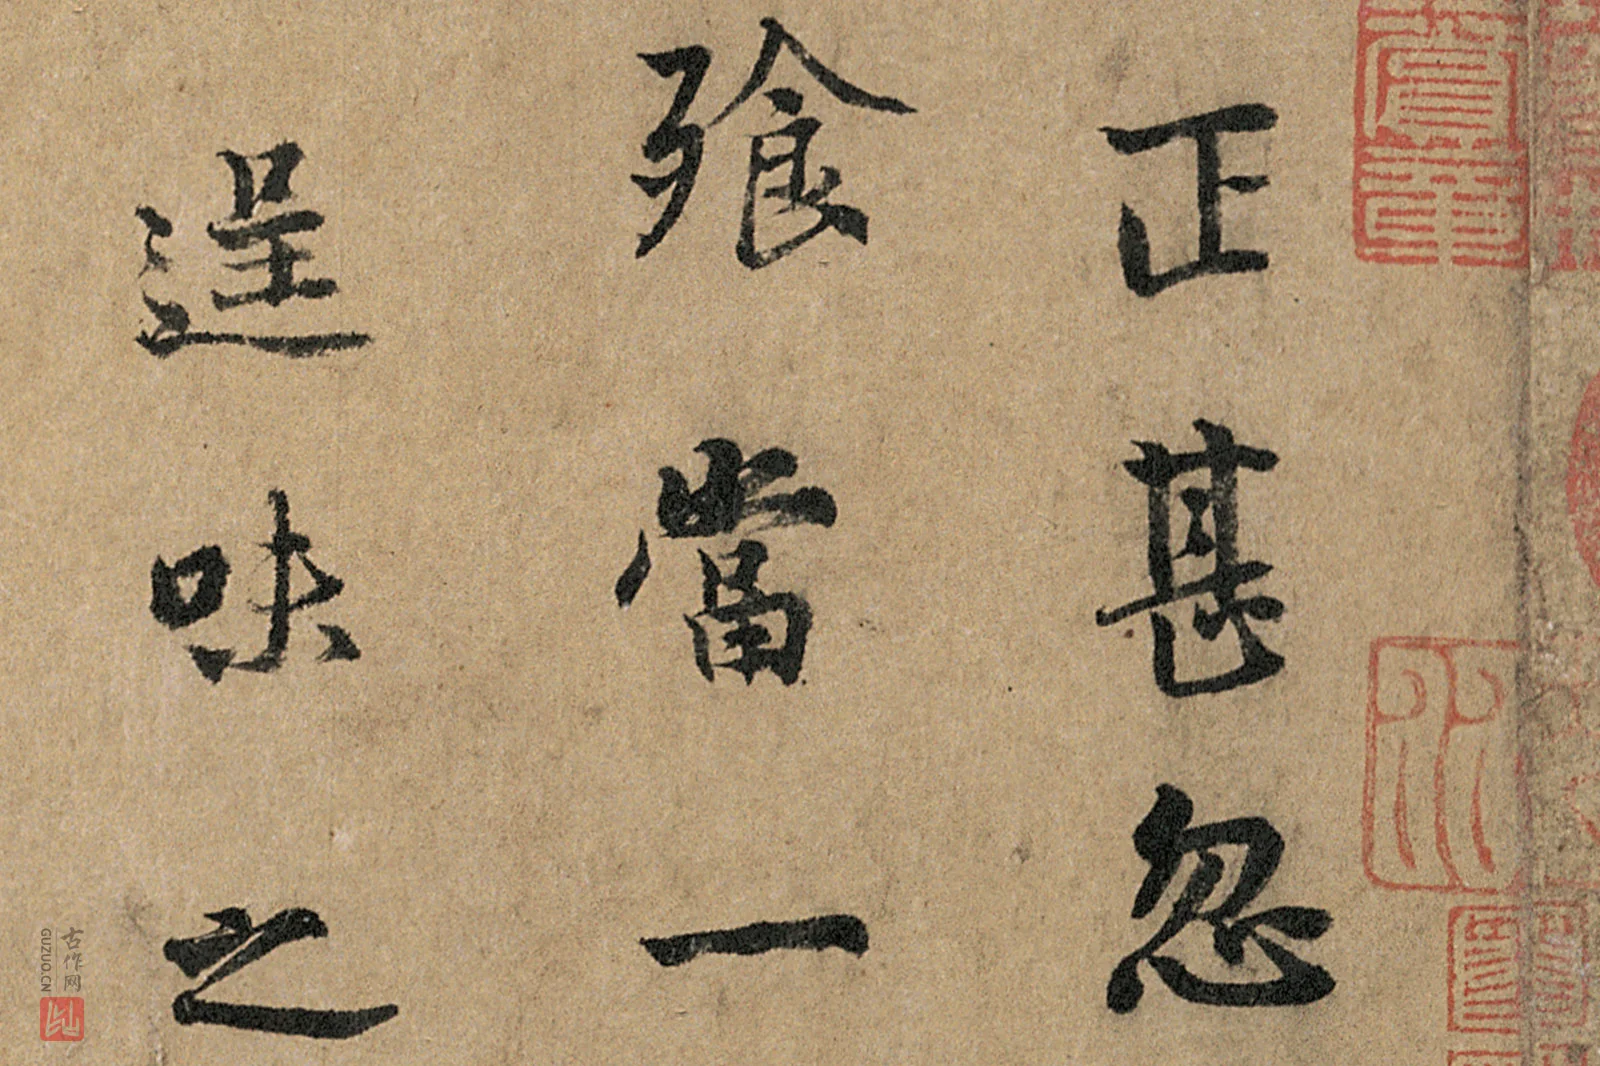 正甚忽
飱當一
逞味之
古作网
GUZUO.CN